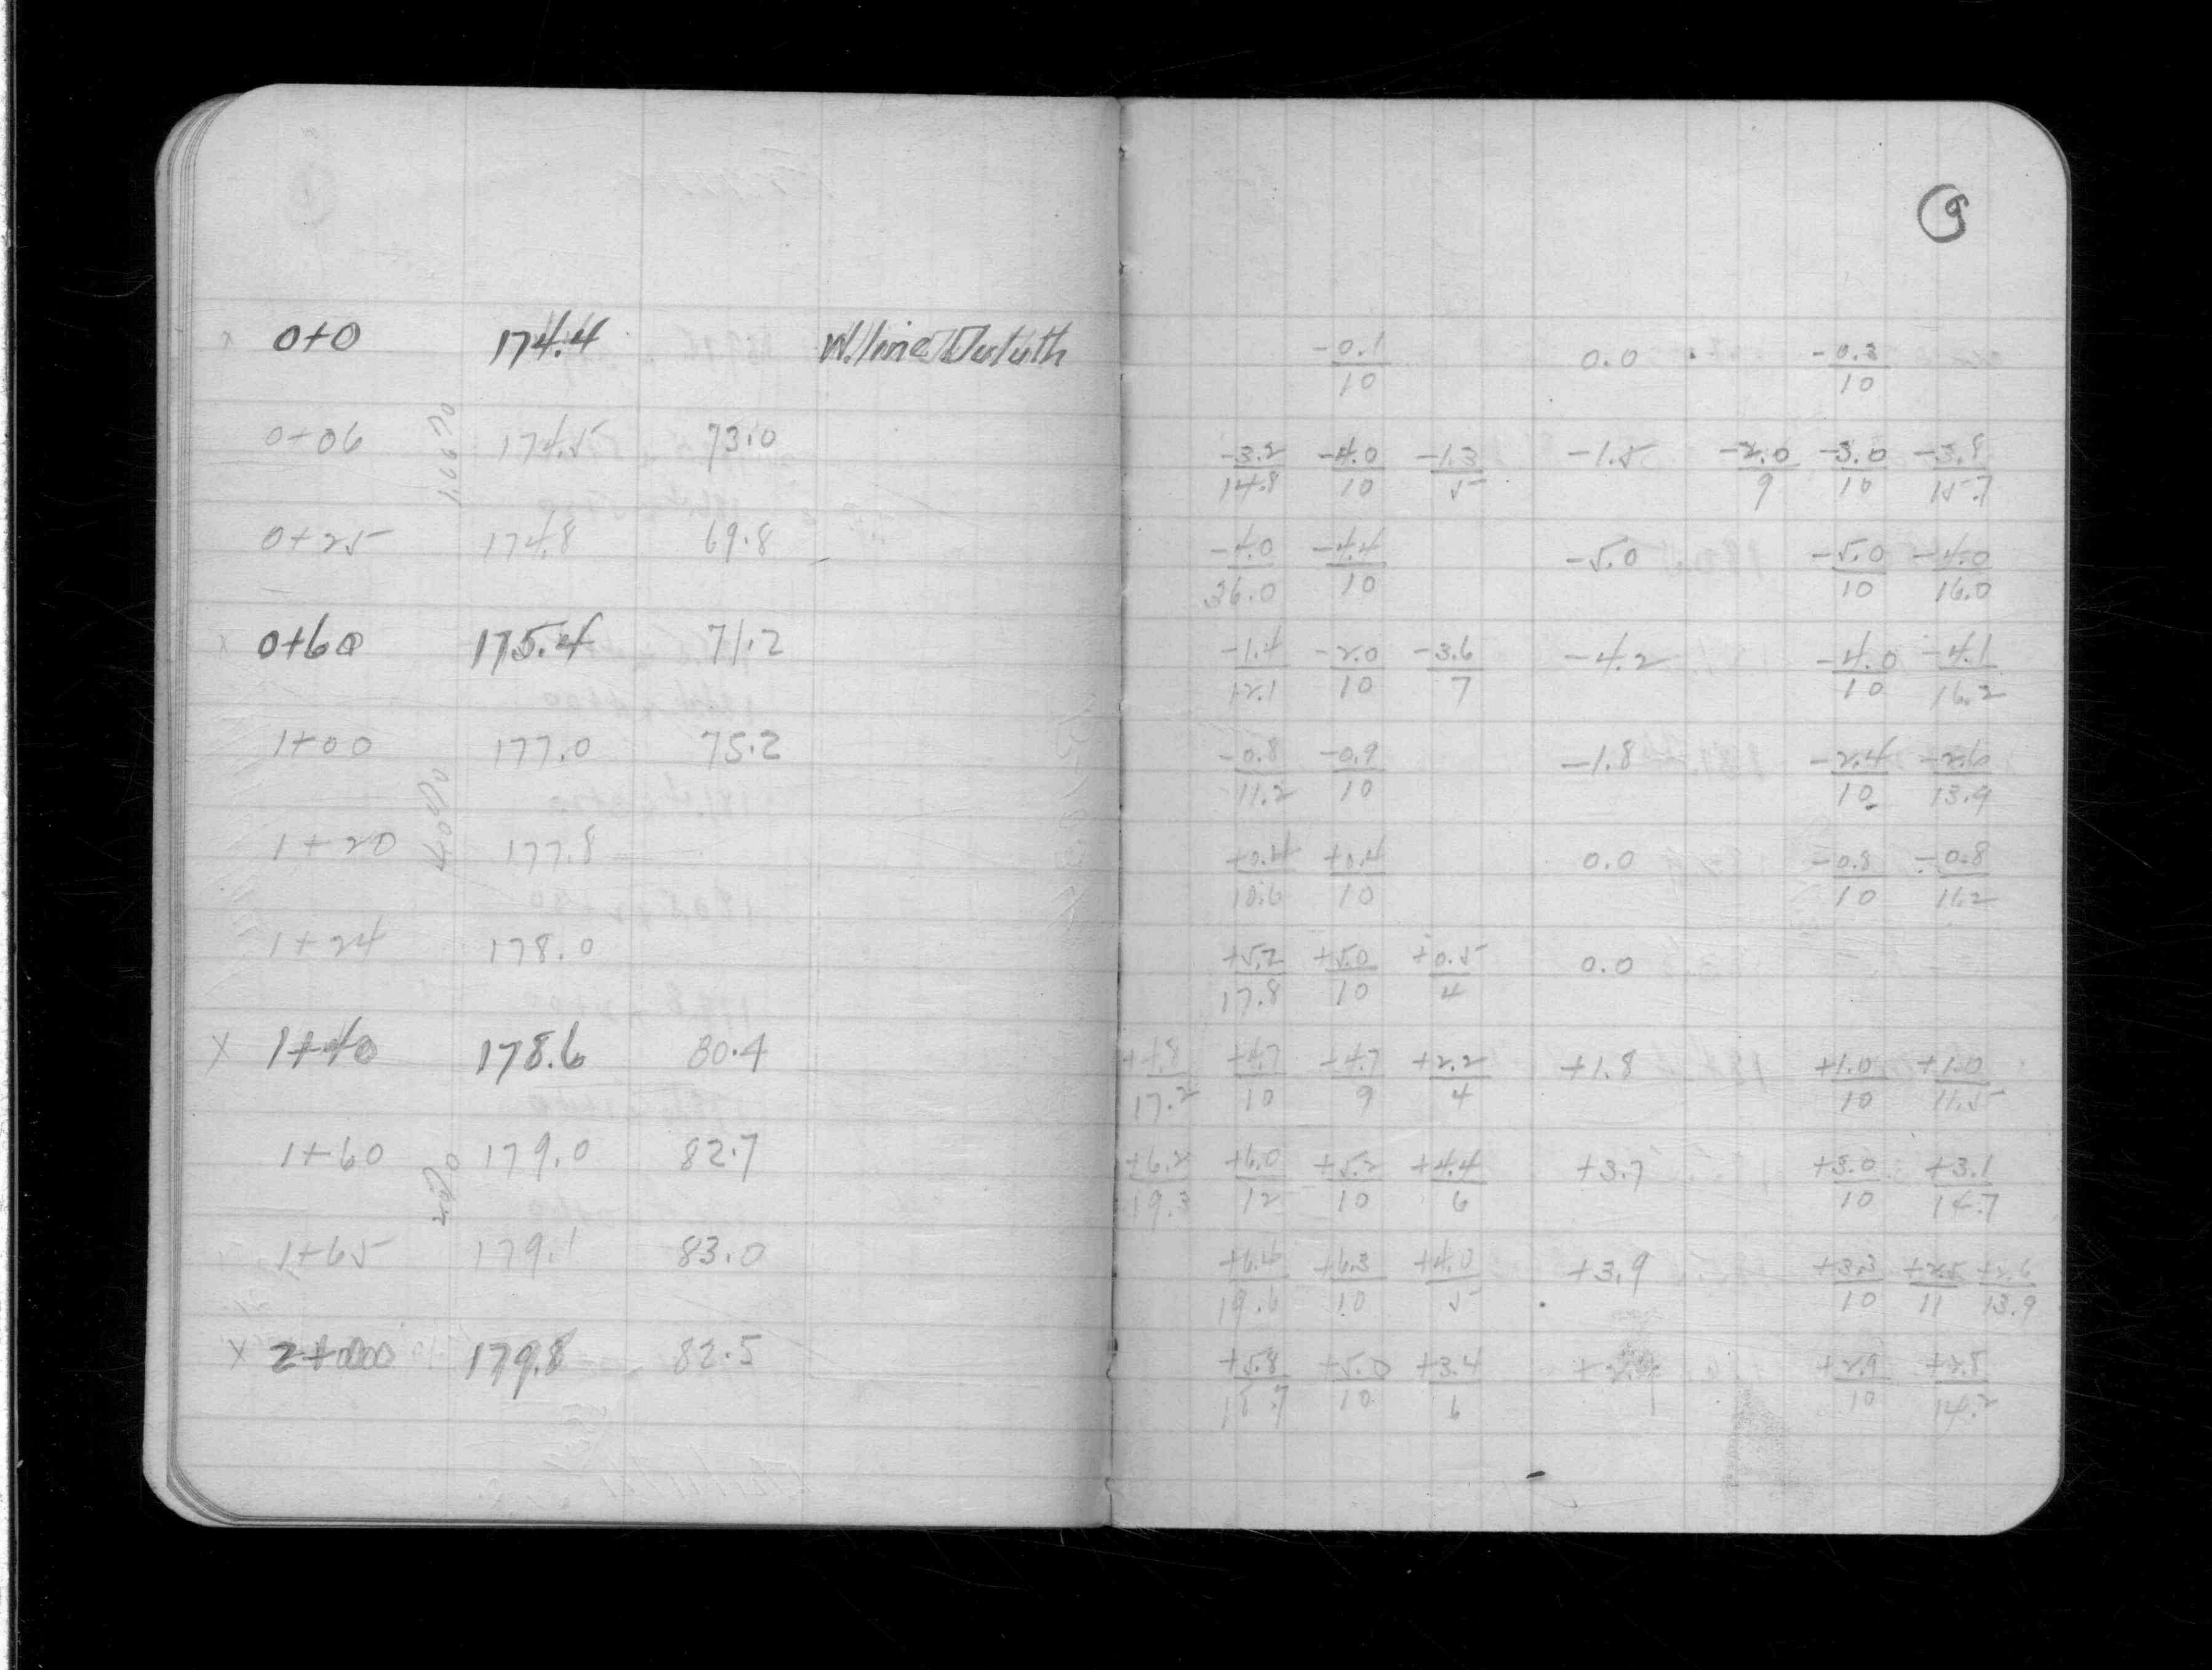 9
x 0+0 174.4 W. line Duluth
-0.1/10 0.0 -0.3/10
0+06 174.5 73.0
-3.2/14.8 -4.0/10 -1.3/5 -1.5 -2.0/9 -3.0/10 -3.8/15.7
0+25 174.8 69.8
-4.0/36.0 -4.4/10 -5.0 -5.0/10 -4.0/16.0
x 0+60 175.4 71.2
-1.4/12.1 -2.0/10 -3.6/7 -4.2 -4.0/10 -4.1/16.2
1+00 177.0 75.2
-0.8/11.2 -0.9/10 -1.8 -2.4/10 -2.6/13.9
1+20 177.8
+0.4/10.6 +0.4/10 0.0 -0.8/10 -0.8/11.2
1+24 178.0
+5.2/17.8 +5.0/10 +0.5/4 0.0
x 1+40 178.6 80.4
+4.8/17.2 +4.7/10 +4.7/9 +2.2/4 +1.8 +1.0/10 +1.0/11.5
1+60 179.0 82.7
+6.2/19.3 +6.0/12 +5.2/10 +4.4/6 +3.7 +3.0/10 +3.1/14.7
1+65 179.1 83.0
+6.4/19.6 +6.3/10 +4.0/5 +3.9 +3.3/10 +2.5/11 +2.6/13.9
x 2+00 179.8 82.5
+5.8 +5.0/10 +3.4/6 +2.9/10 +2.8/14.2